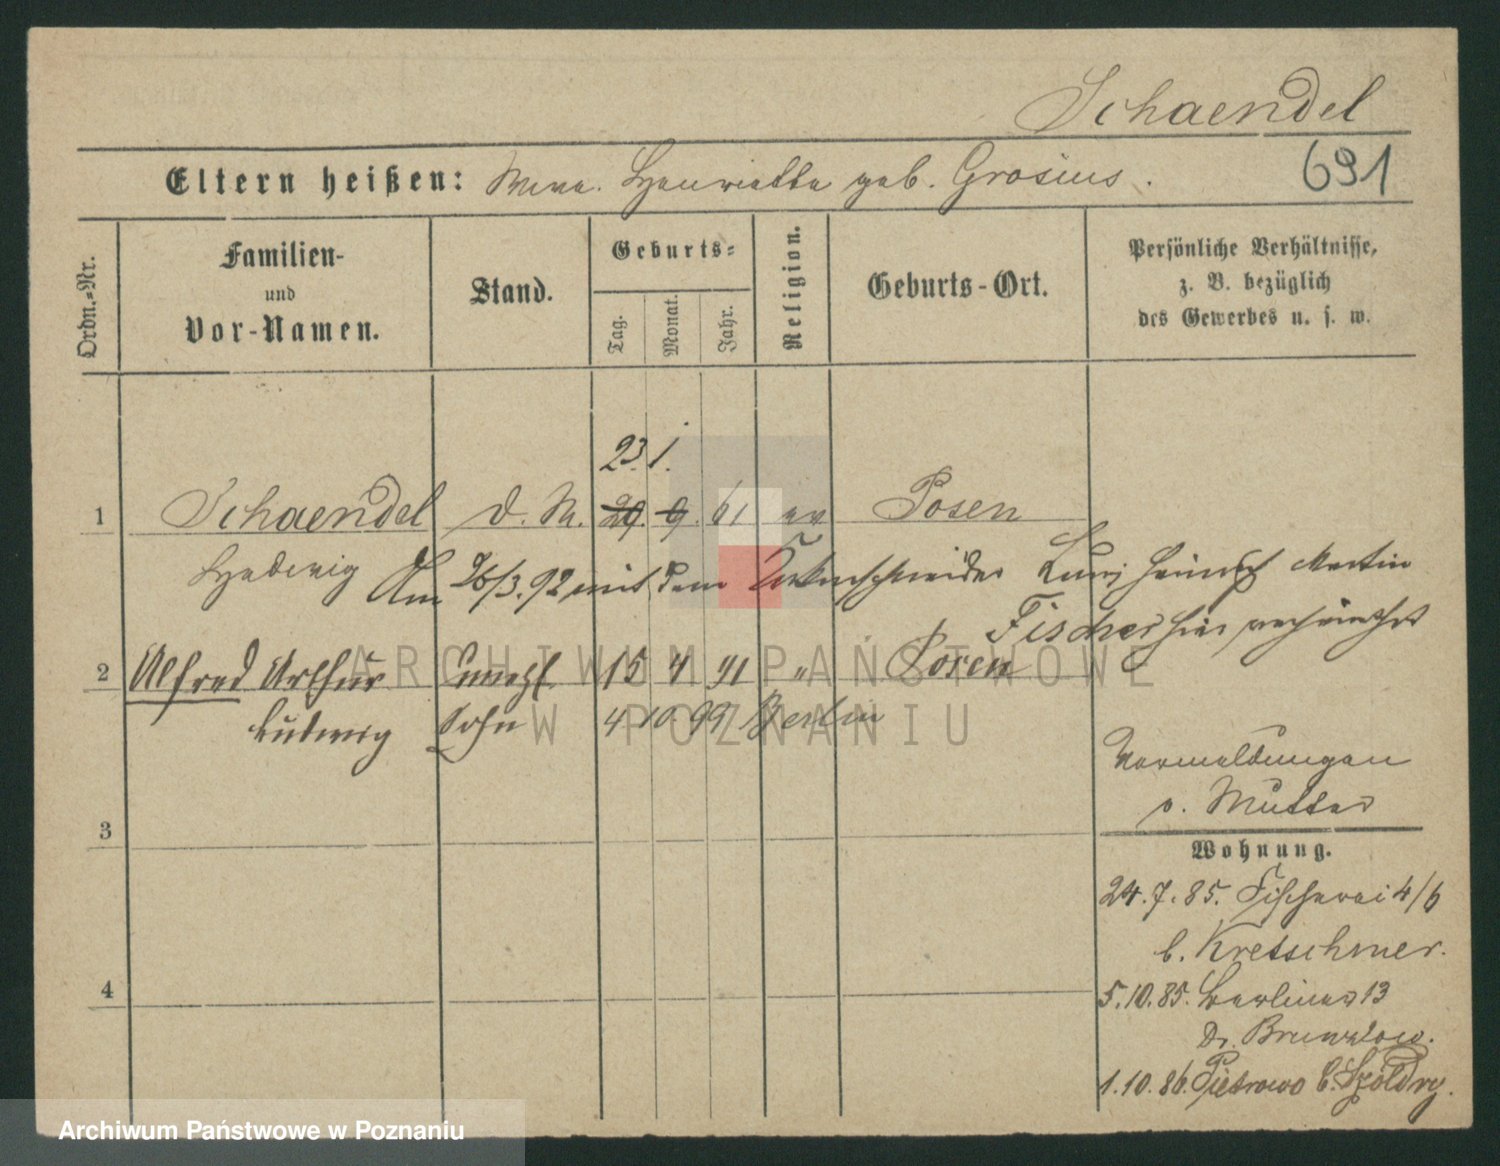 Schaendel
691
Eltern heißen: Wwe. Henriette geb. Grosius.
Ordn.-Nr.
Familien-
und
Vor-Namen.
Stand.
Geburts-
Tag.
Monat.
Jahr.
Religion.
Geburts-Ort.
Persönliche Verhältnisse,
z. B. bezüglich
des Gewerbes u. s. w.
23. 1.
1 Schaendel d. M. 29. 9. 61 ev Posen
Hedwig Am 26/3. 92 mit dem Heinrich Martin
Fischer hier verheirathet
2 Alfred Arthur unehl. 15 4 91 " Posen
Ludwig Sohn 4 10 99 Berlin
ARCHIWUM PAŃSTWOWE
W POZNANIU
Vermeldungen
s. Mutter
3
Wohnung.
24. 7. 85. Fischerei 4/6
b. Kretschmer.
4
5. 10. 85. Berliner 13
Dr. Brunzlow.
1. 10. 86. Pietrowo b. Szoldry.
Archiwum Państwowe w Poznaniu